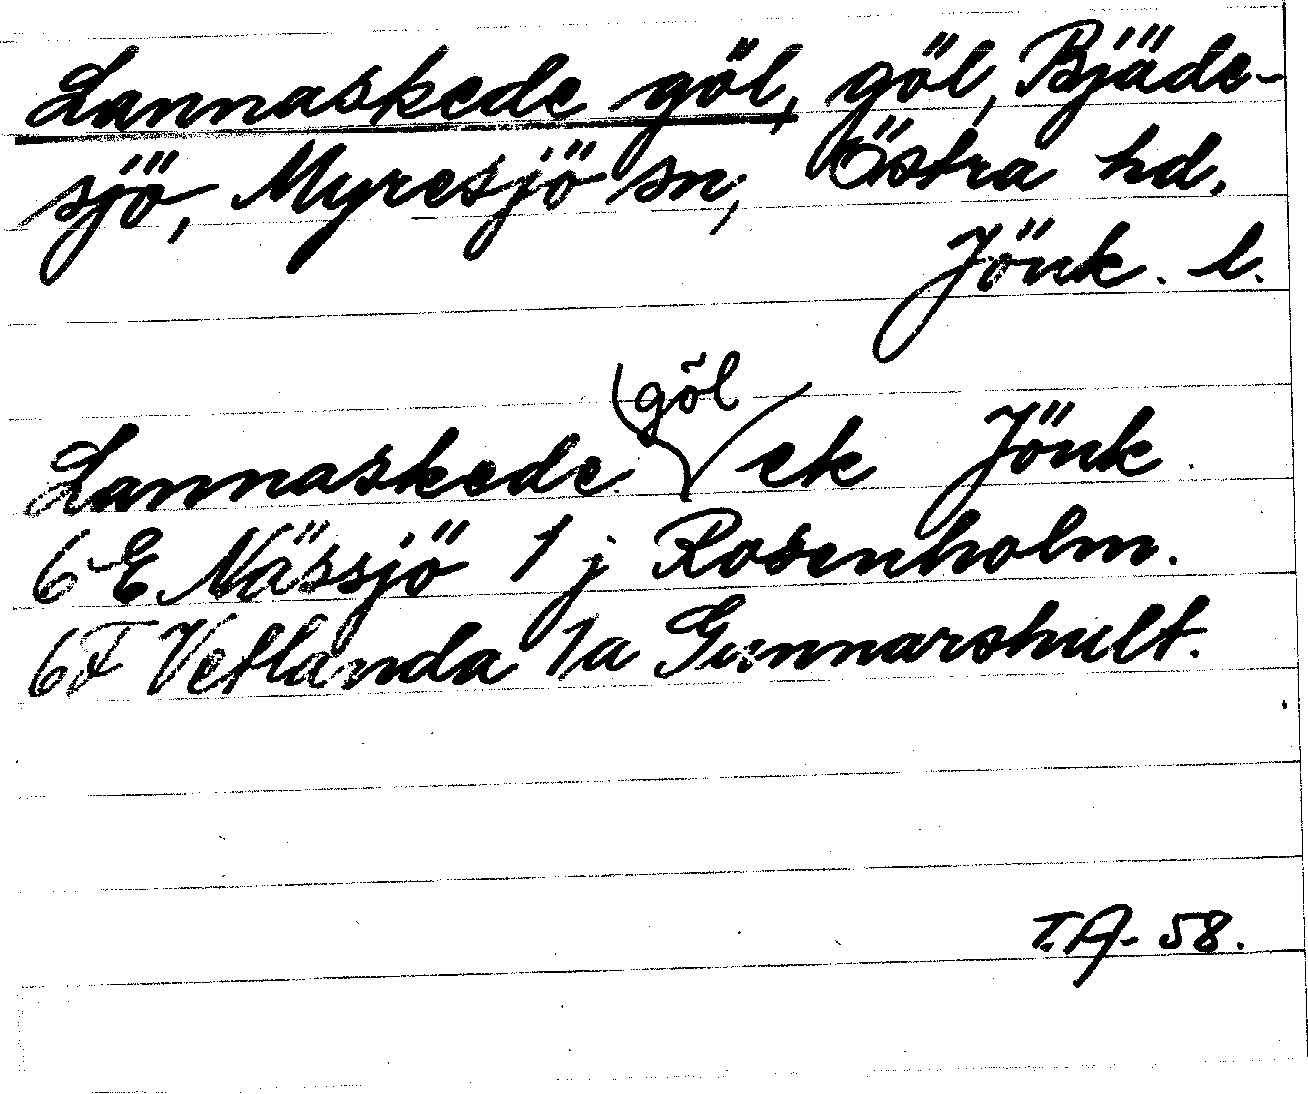 Lannaskede göl, göl, Bjäde-
sjö, Myresjö sn, Östra hd.
Jönk. l.
göl
Lannaskede ek Jönk.
6 E Nässjö 1 j Rosenholm.
6F Vetlanda 1a Gunnarshult.
T.A. 58.